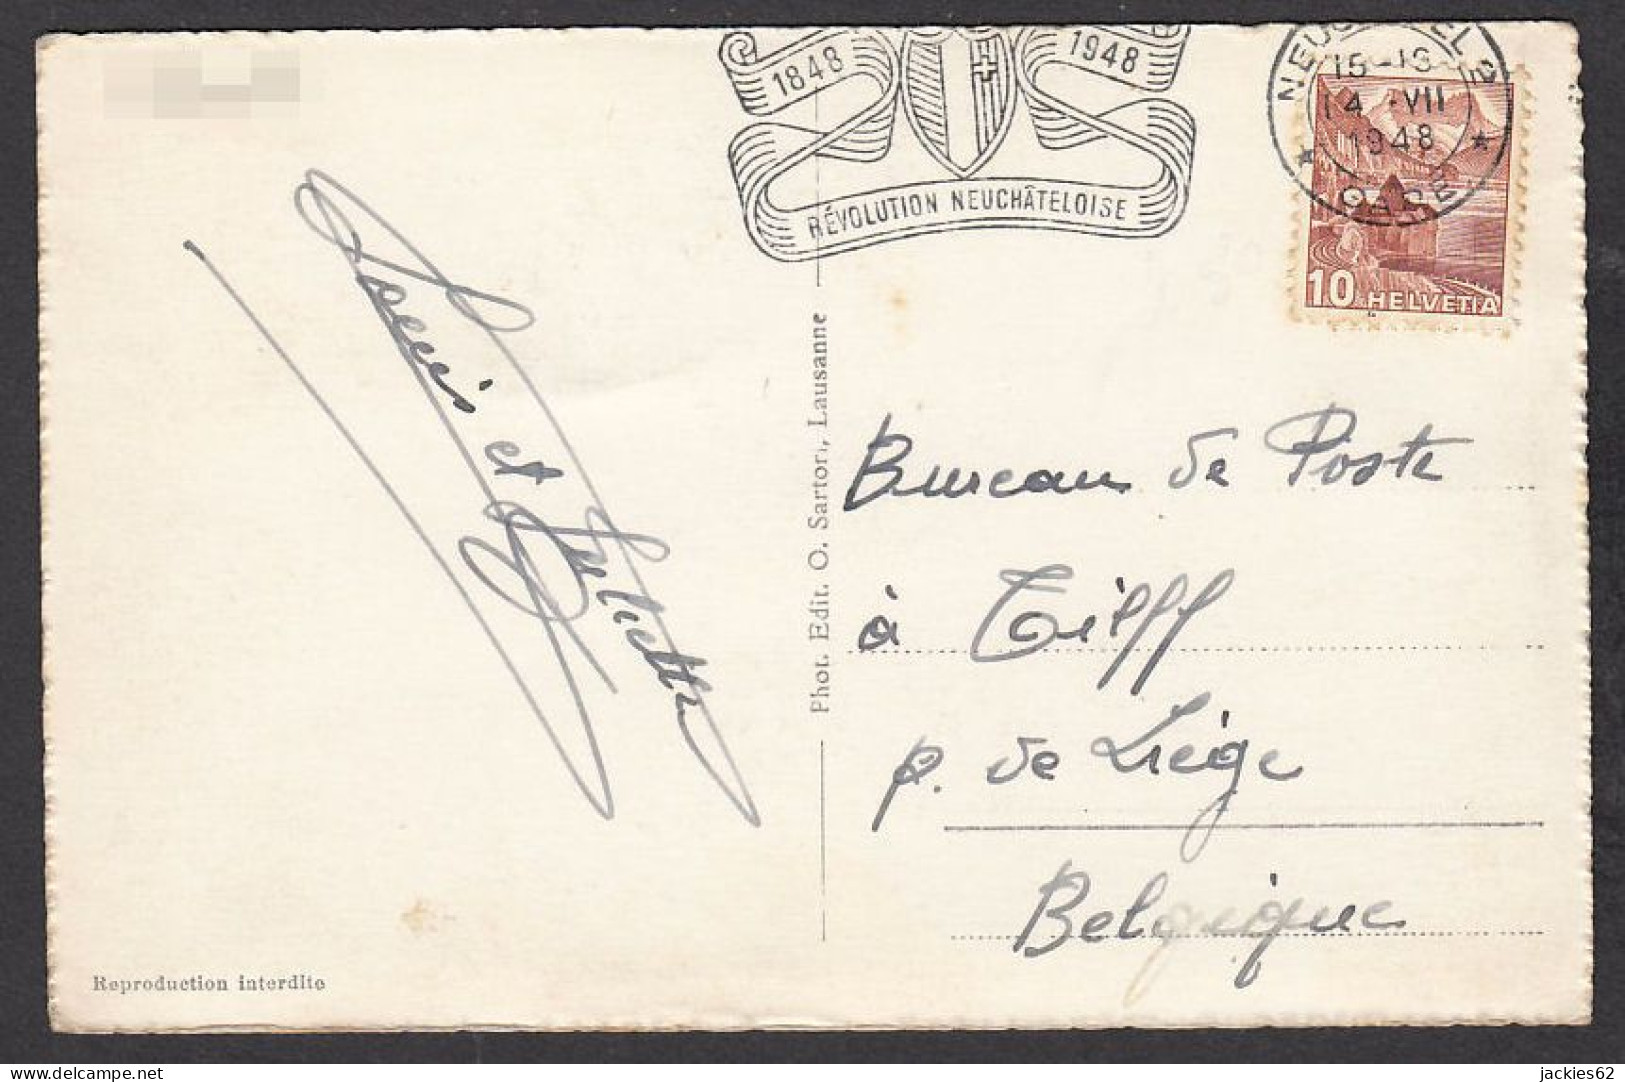 1848
1948
RÉVOLUTION NEUCHÂTELOISE
NEUCHÂTEL 2
15-16
14.VII
1948
GARE
10 HELVETIA
Louis et Juliette
Phot. Edit. O. Sartori, Lausanne
Bureau de Poste
à Tilff
p. de Liège
Belgique
Reproduction interdite
delcampe.net
jackies62